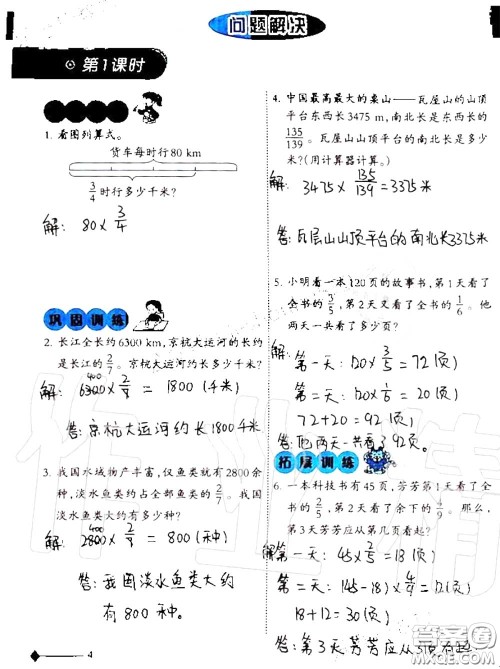 问题解决
第1课时
1. 看图列算式。
货车每时行80 km
3/4时行多少千米?
解: 80×3/4
巩固训练
2. 长江全长约6300 km,京杭大运河的长约
是长江的2/7。京杭大运河约长多少千米?
解: 6300×2/7=1800(千米)
答:京杭大运河约长1800千米
3. 我国水域物产丰富,仅鱼类就有2800余
种,淡水鱼类约占全部鱼类的2/7。我国
淡水鱼类大约有多少种?
解: 2800×2/7=800(种)
答:我国淡水鱼类大约
有800种。
4. 中国最高最大的桌山——瓦屋山的山顶
平台东西长3475 m,南北长是东西长的
135/139。瓦屋山山顶平台的南北长是多少
米?(用计算器计算。)
解: 3475×135/139=3375米
答:瓦屋山山顶平台的南北长3375米
5. 小明看一本120页的故事书,第1天看了
全书的3/5,第2天又看了全书的1/6。他
两天一共看了多少页?
解: 第一天:120×3/5=72(页)
第二天:120×1/6=20(页)
72+20=92(页)
答:他两天一共看了92页。
拓展训练
6. 一本科技书有45页,芳芳第1天看了全
书的2/5,第2天看了余下的4/9。那么,第
3天芳芳应从第几页看起?
解第一天:45×2/5=18(页)
第二天:(45-18)×4/9=12(页)
18+12=30(页)
答:第3天芳芳应从31页看起
4
答案圈
MXQE.COM
作业精